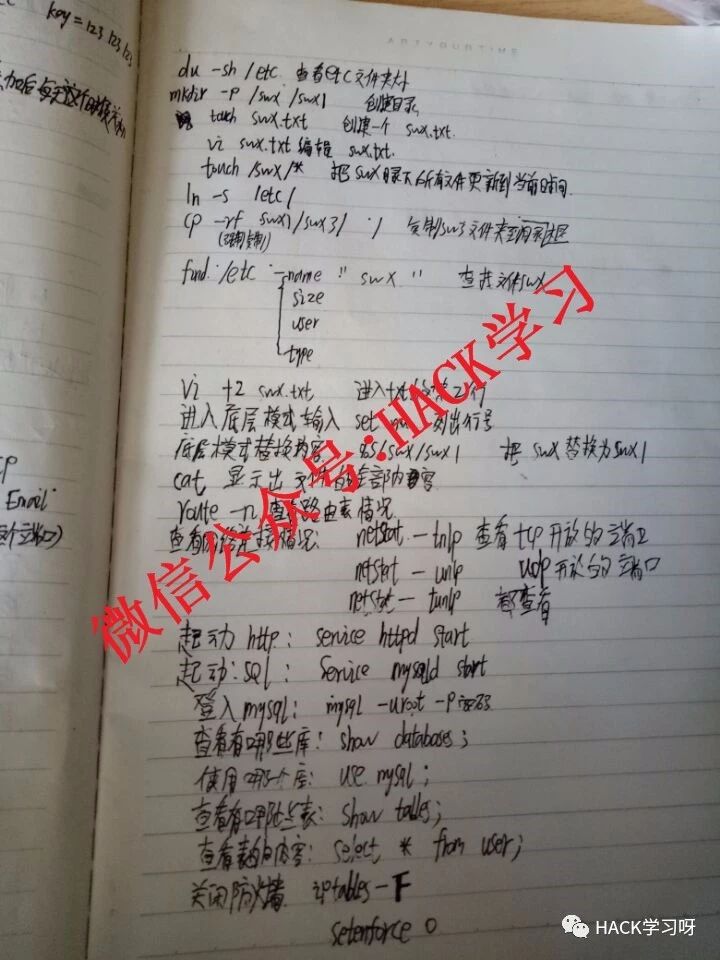 key=123 123 123
du -sh /etc 查看etc文件夹大小
mkdir -p /swx/swx1 创建目录
touch swx.txt 创建一个 swx.txt.
vi swx.txt 编辑 swx.txt.
touch /swx/* 把swx目录下所有文件更新到当前时间
ln -s /etc/
cp -rf swx1/swx3/ ./ 复制/sw3文件夹至
(强制复制)
find /etc -name "swx" 查找文件swx
size
user
type
vi +2 swx.txt 进入txt的第2行
进入底层模式输入 set nu 列出行号
底层模式替换内容 %s/swx/swx1 把swx替换为swx1
cat 显示出文件的全部内容
route -n 查看路由表情况
查看网络连接情况: netstat -tnlp 查看tcp开放的端口
netstat -unlp udp开放的端口
netstat -tunlp 都查看
起动http: service httpd start
起动:sql: service mysqld start
登入mysql: mysql -uroot -p密码
查看有哪些库: show databases;
使用哪个库: use mysql;
查看有哪些表: show tables;
查看表的内容: select * from user;
关闭防火墙 iptables -F
setenforce 0
cp
Email
端口)
微信公众号:HACK学习
HACK学习呀